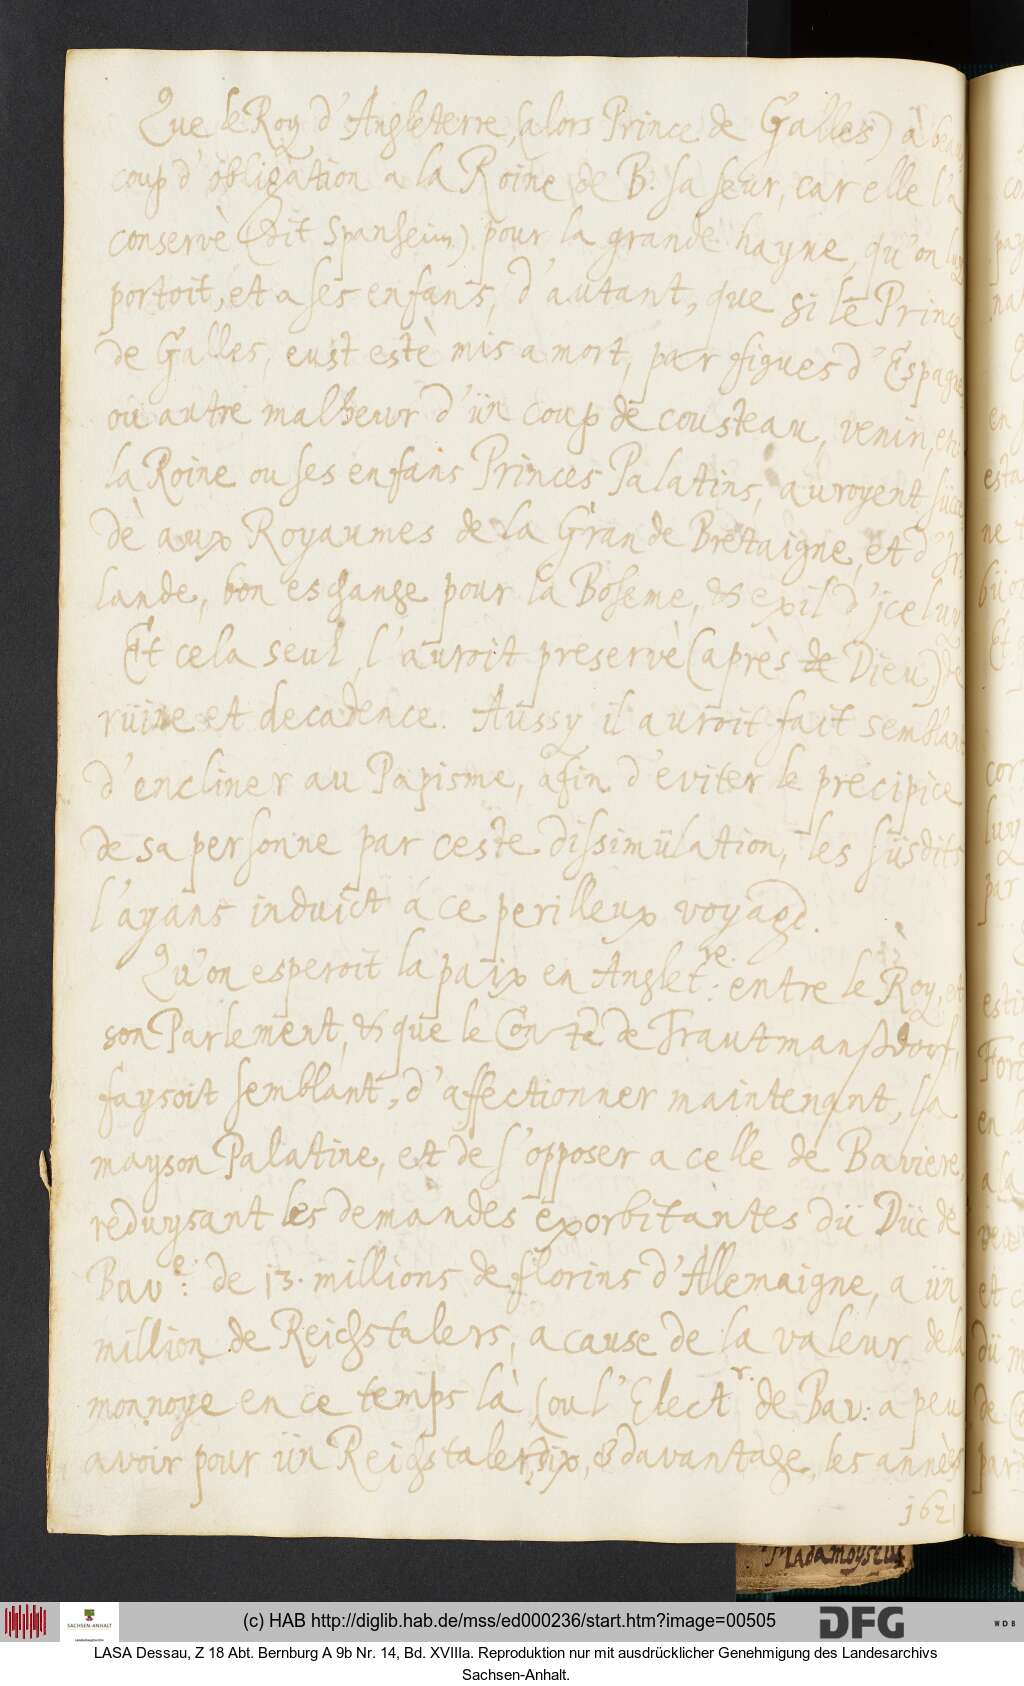 Que le Roy d'Angleterre, (alors Prince de Galles) à beau
coup d'obligation a la Roine de B. sa seur, car elle l'a
conservè (dit Spanheim) pour la grande hayne, qu'on luy
portoit, et a ses enfans, d'autant, que si le Prince
de Galles, eust estè mis a mort, par figues d'Espagne
ou autre malheur d'ün coup de cousteau, venin, etc.
la Roine ou ses enfans Princes Palatins, auroyent succe
dè aux Royaumes de la Grande Bretaigne, et d'Ir-
lande, bon eschange pour la Boheme, & exil d'jceluy
Et cela seul, l'auroit preservè (après de Dieu) de
rüine et decadence. Aüssy il auroit fait semblant
d'encliner au Papisme, afin d'eviter le precipice
de sa personne par ceste dissimülation, les süsdits
l'ayans induict á ce perilleux voyage.
Qu'on esperoit la paix en Anglet:re. entre le Roy, et
son Parlement, & que le Conte de Trautmanßdorf,
faysoit semblant, d'affectionner maintenant, la
mayson Palatine, et de s'opposer a celle de Baviere,
reduysant les demandes exorbitantes dü Düc de
Bav:e. de 13. millions de florins d'Allemaigne, a ün
million de Reichstalers, a cause de la valeur de la
monnoye en ce temps là (ou l'Elect:r. de Bav: a peu
avoir pour ün Reichstaler, dix, & davantage, les annèes
1621
Madamoyselle
(c) HAB http://diglib.hab.de/mss/ed000236/start.htm?image=00505
SACHSEN-ANHALT
DFG
WDB
LASA Dessau, Z 18 Abt. Bernburg A 9b Nr. 14, Bd. XVIIIa. Reproduktion nur mit ausdrücklicher Genehmigung des Landesarchivs
Sachsen-Anhalt.